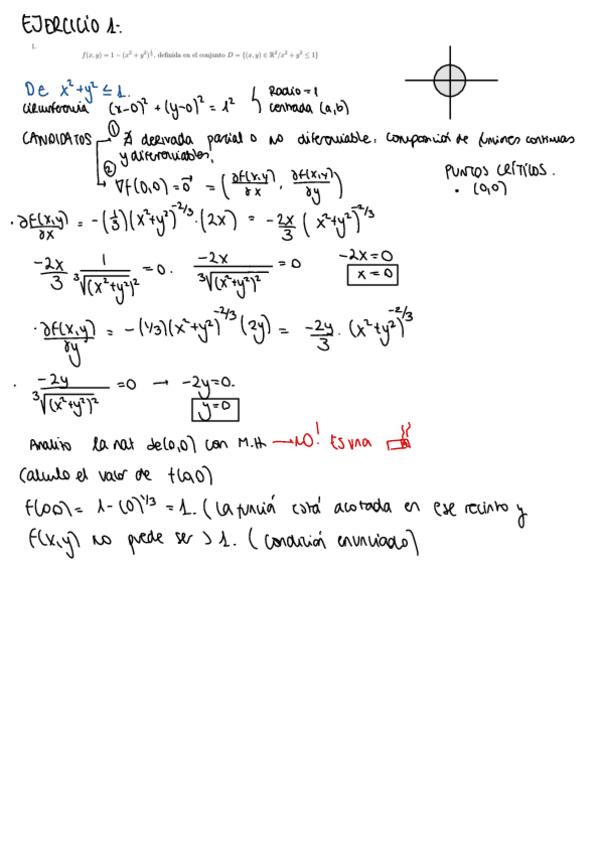 EJERCICIO 1.
1.
f(x, y) = 1 − (x² + y²)^{1/3}, definida en el conjunto D = {(x, y) ∈ ℝ²/x² + y² ≤ 1}
De x²+y² ≤ 1.
circunferencia (x-0)² + (y-0)² = 1² Radio = 1
centrada (a,b)
CANDIDATOS ① ∄ derivada parcial o no diferenciable. composición de funciones continuas
y diferenciables.
② ∇f(0,0) = 0⃗ = (∂f(x,y)/∂x , ∂f(x,y)/∂y)
PUNTOS CRÍTICOS.
• (0,0)
· ∂f(x,y)/∂x = -(1/3)(x²+y²)^{-2/3} · (2x) = -2x/3 (x²+y²)^{-2/3}
-2x/3 1/∛(x²+y²)² = 0. -2x/∛(x²+y²)² = 0 -2x=0
x=0
· ∂f(x,y)/∂y = -(1/3)(x²+y²)^{-2/3} (2y) = -2y/3 · (x²+y²)^{-2/3}
· -2y/∛(x²+y²)² = 0 → -2y=0.
y=0
Analizo la nat de (0,0) con M.H. → NO! Es una
Calculo el valor de f(0,0)
f(0,0) = 1-(0)^{1/3} = 1. (La función está acotada en ese recinto y
f(x,y) no puede ser > 1. (condición enunciado)